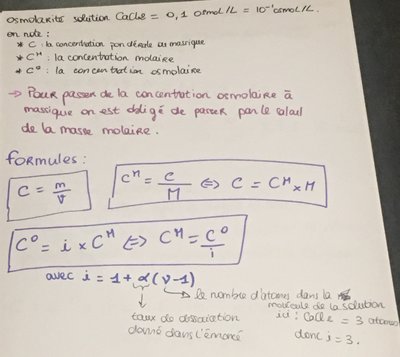 osmolarité solution CaCl2 = 0,1 osmol/L = 10⁻¹ osmol/L.
on note :
* C : la concentration pondérale ou massique
* Cᴹ : la concentration molaire
* C° : la concentration osmolaire
→ Pour passer de la concentration osmolaire à
massique on est obligé de passer par le calcul
de la masse molaire.
formules :
C = m/V
Cᴹ = C/M ⇔ C = Cᴹ × M
C° = i × Cᴹ ⇔ Cᴹ = C°/i
avec i = 1 + α(ν - 1)
→ le nombre d'atomes dans la
molécule de la solution
ici : CaCl2 = 3 atomes
donc i = 3.
taux de dissociation
donné dans l'énoncé